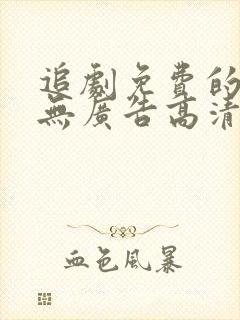 追劇免費的
無廣告高清
血色風暴